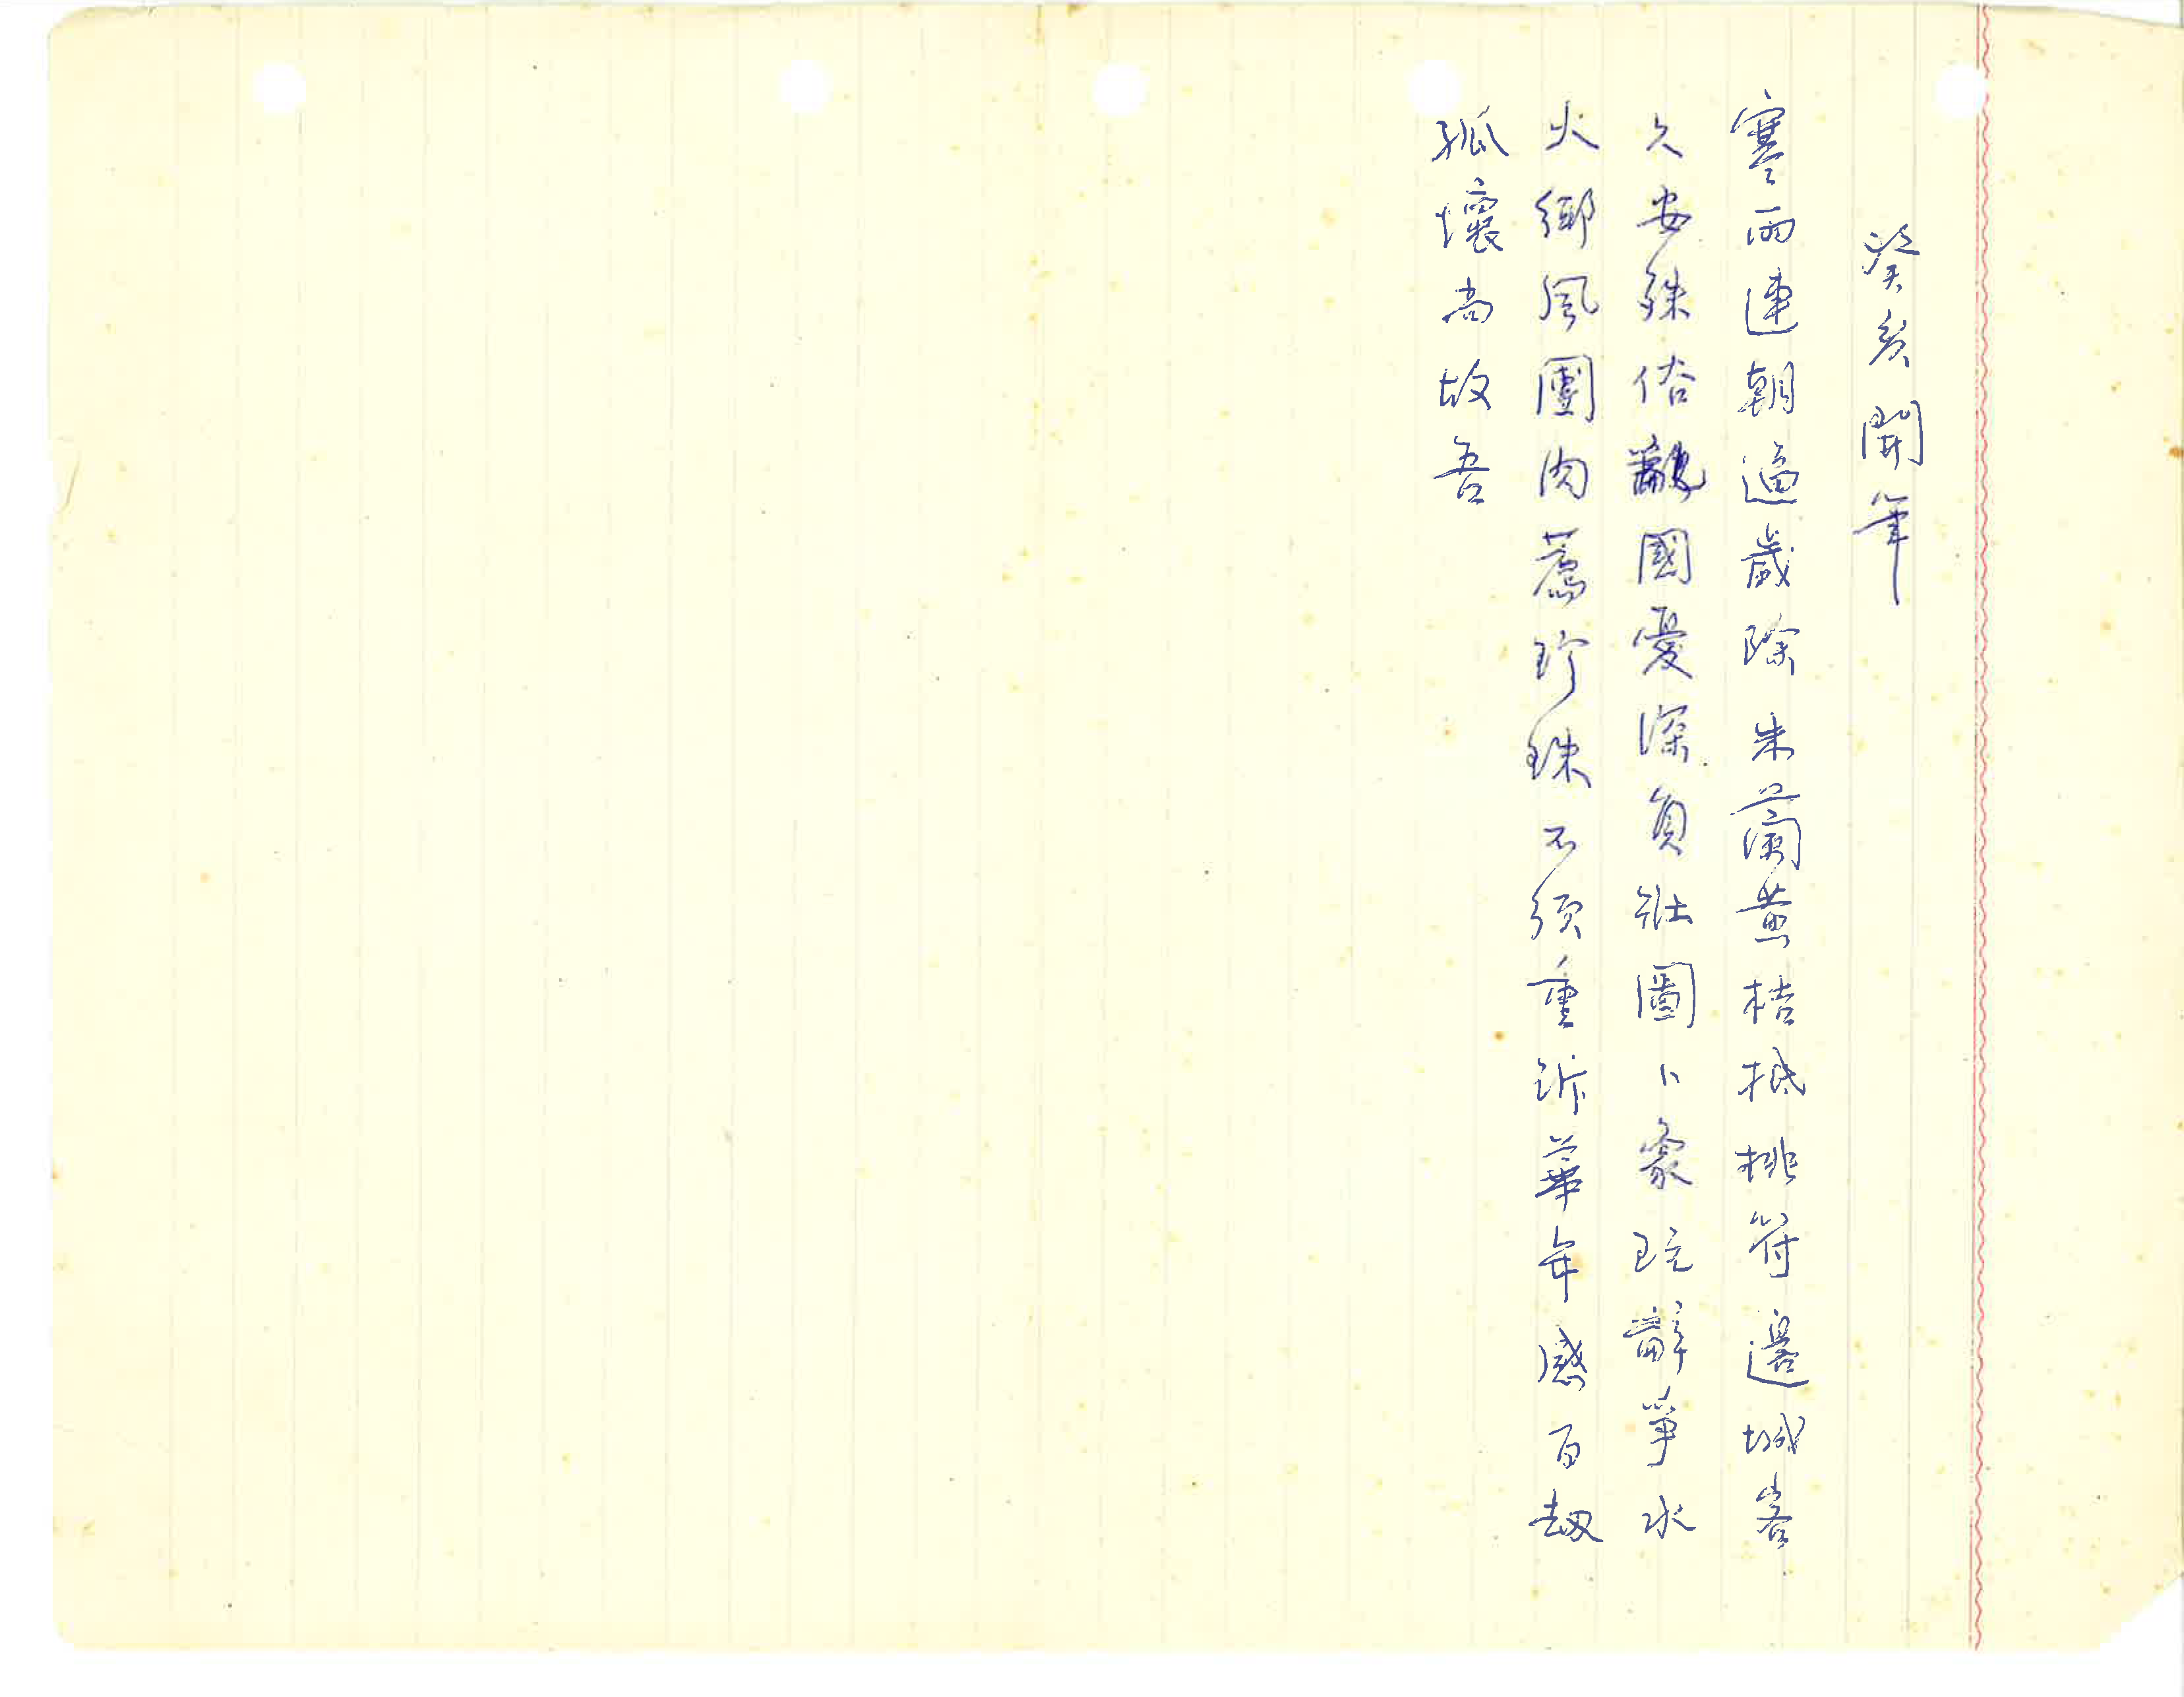 癸亥開筆
寒雨連朝逼歲除朱蘭黃桔抵桃符邊城客
久安殊俗亂國憂深負壯圖卜象玩辭爭水
火鄉風團肉薦珍珠不須重訴華年感百劫
孤懷尚故吾